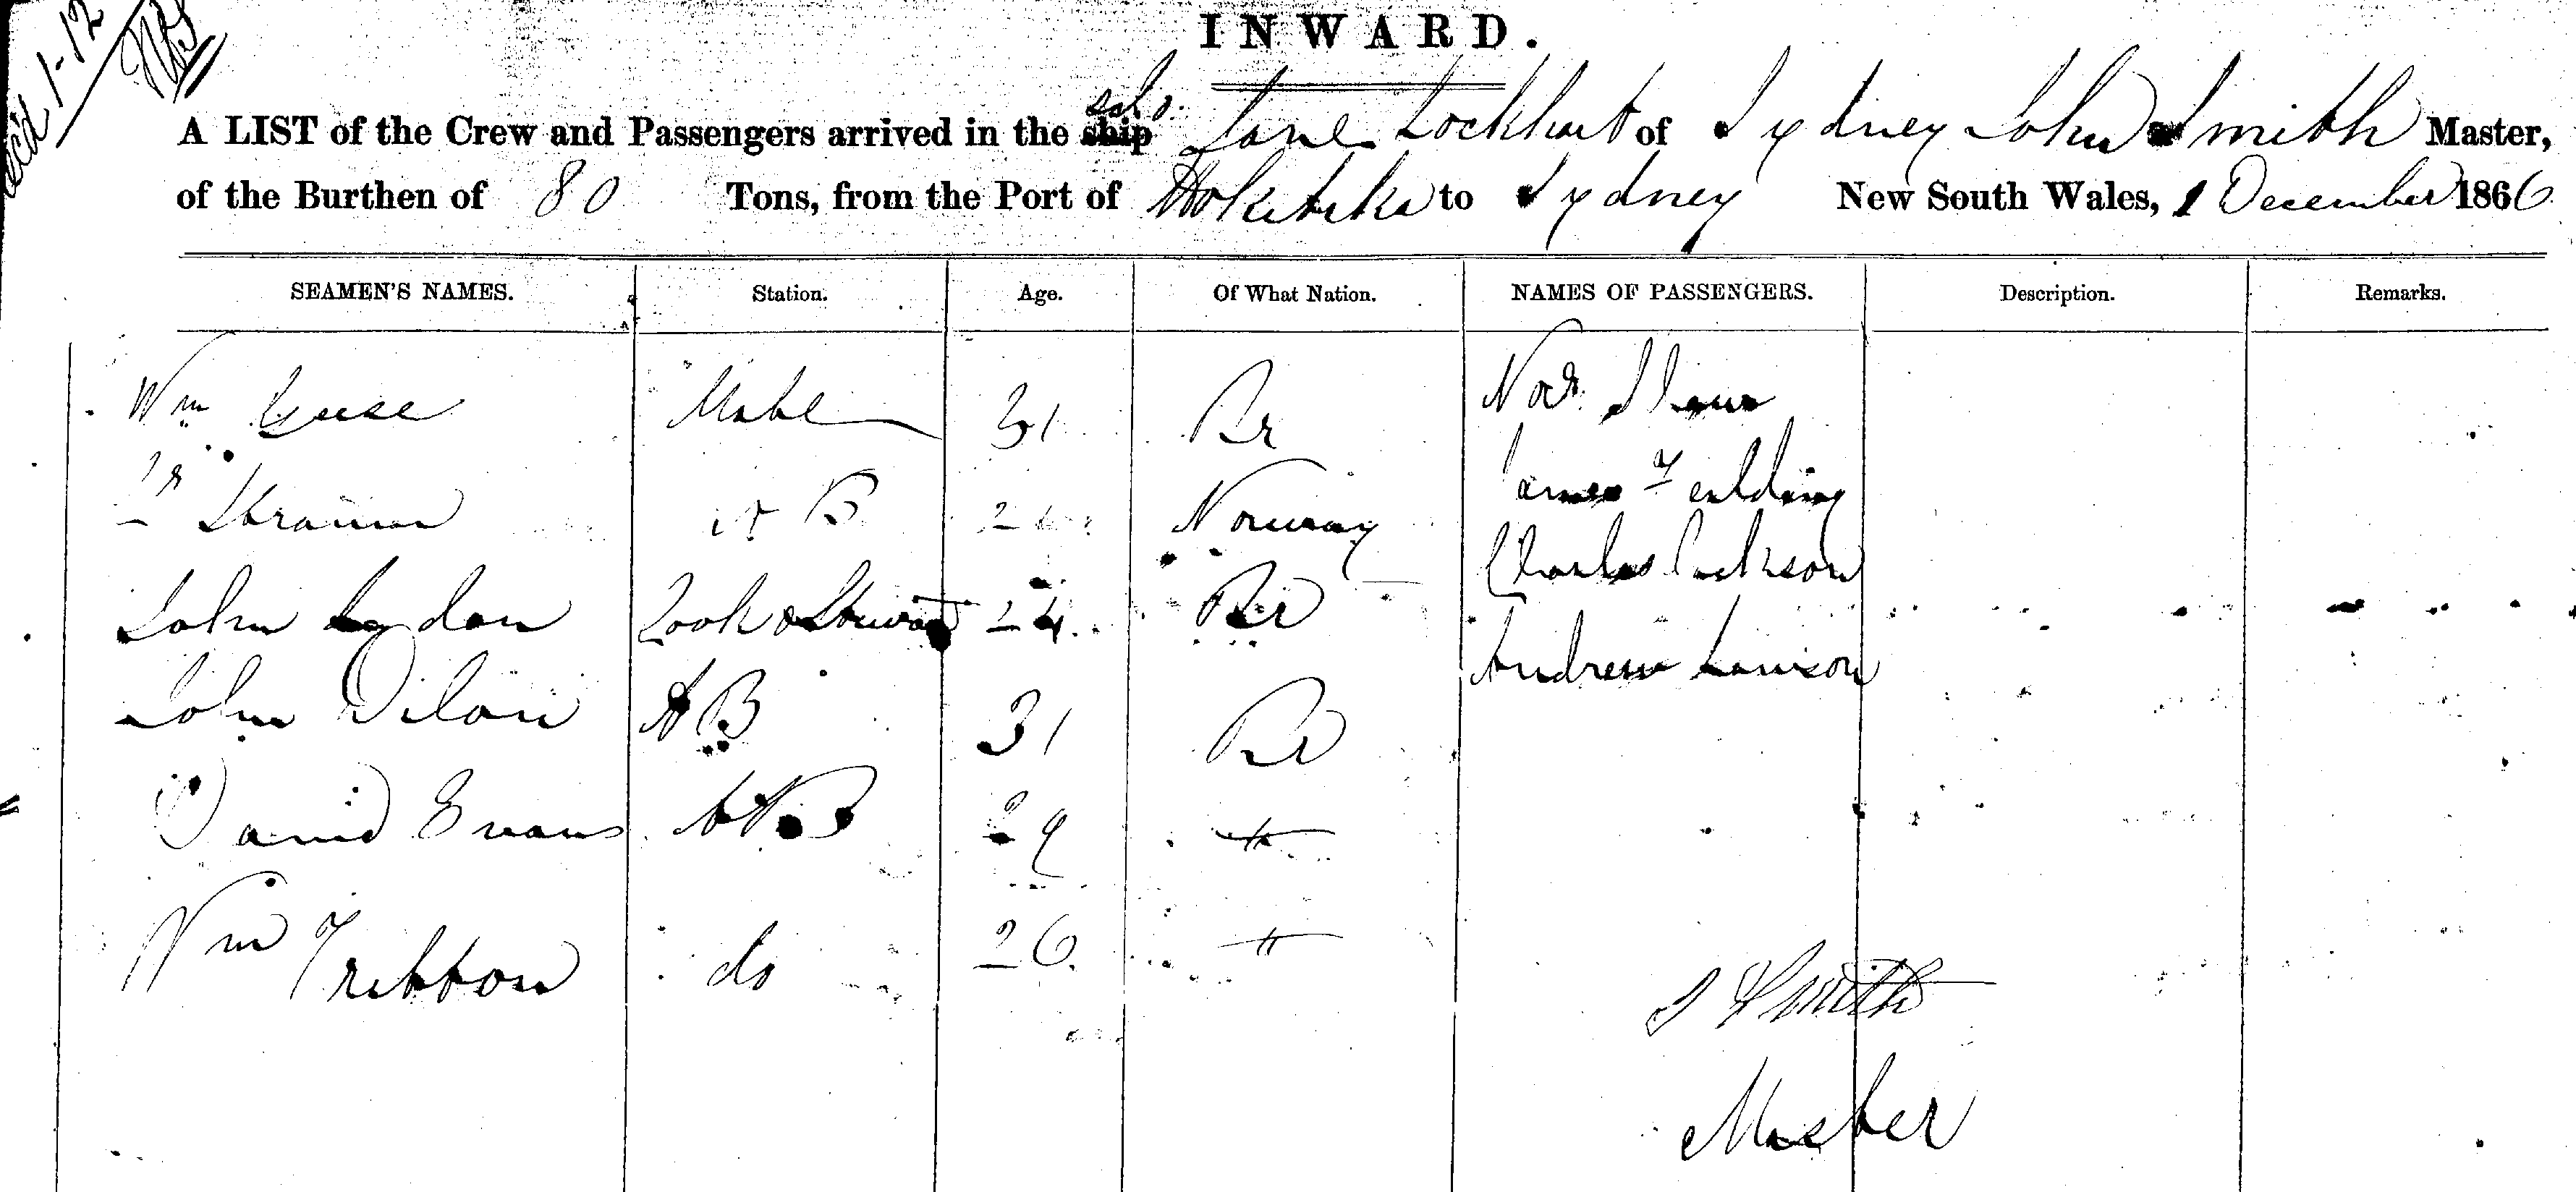 recd 1-12
INWARD.
A LIST of the Crew and Passengers arrived in the ship schr. Jane Lockhart of Sydney John Smith Master,
of the Burthen of 80 Tons, from the Port of Hokitika to Sydney New South Wales, 1 December 1866
SEAMEN'S NAMES. Station. Age. Of What Nation. NAMES OF PASSENGERS. Description. Remarks.
Wm Mate 31 Br
B Norway James Feilding
Charles Jackson
John Lydon Cook & Steward 24 Br
Andrew Lawson
John Dilon AB 31 Br
David Evans AB 29 "
Wm Tribbon do 26 "
J Smith
Master